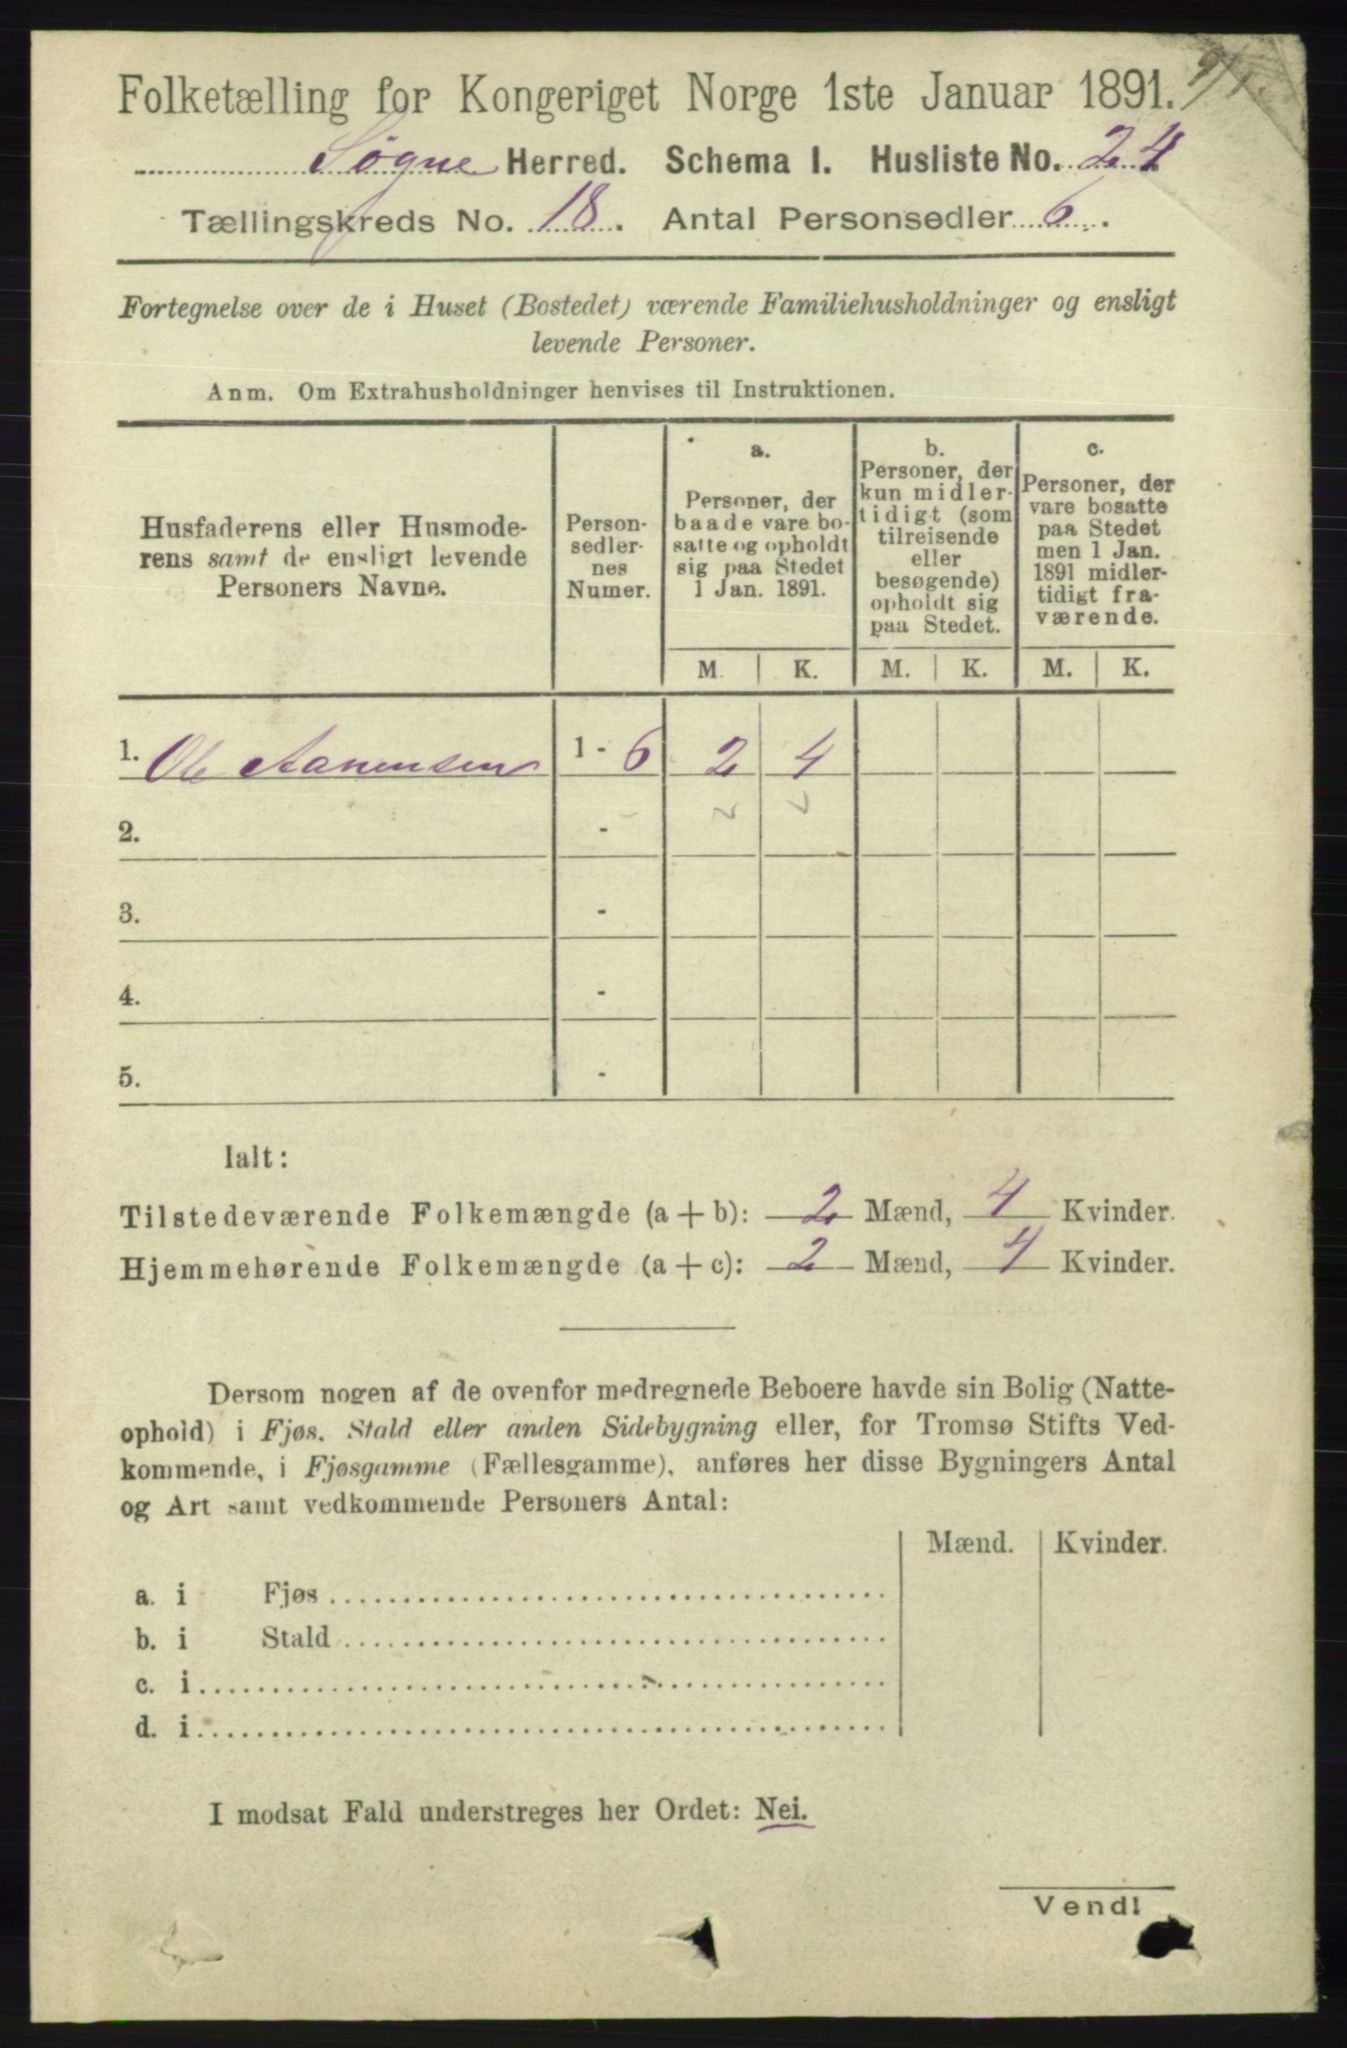 Folketælling for Kongeriget Norge 1ste Januar 1891.
Søgne Herred. Schema I. Husliste No. 24
Tællingskreds No. 18. Antal Personsedler 6.
Fortegnelse over de i Huset (Bostedet) værende Familiehusholdninger og ensligt
levende Personer.
Anm. Om Extrahusholdninger henvises til Instruktionen.
Husfaderens eller Husmode-
rens samt de ensligt levende
Personers Navne.
Person-
sedler-
nes
Numer.
a.
Personer, der
baade vare bo-
satte og opholdt
sig paa Stedet
1 Jan. 1891.
b.
Personer, der
kun midler-
tidigt (som
tilreisende
eller
besøgende)
opholdt sig
paa Stedet.
c.
Personer, der
vare bosatte
paa Stedet
men 1 Jan.
1891 midler-
tidigt fra-
værende.
M. K. M. K. M. K.
1. Ole Aanensen 1 - 6 2 4
2. -
3. -
4. -
5. -
Ialt:
Tilstedeværende Folkemængde (a + b): 2 Mænd, 4 Kvinder.
Hjemmehørende Folkemængde (a + c): 2 Mænd, 4 Kvinder.
Dersom nogen af de ovenfor medregnede Beboere havde sin Bolig (Natte-
ophold) i Fjøs, Stald eller anden Sidebygning eller, for Tromsø Stifts Ved-
kommende, i Fjøsgamme (Fællesgamme), anføres her disse Bygningers Antal
og Art samt vedkommende Personers Antal:
Mænd. Kvinder.
a. i Fjøs
b. i Stald
c. i
d. i
I modsat Fald understreges her Ordet: Nei.
Vend!